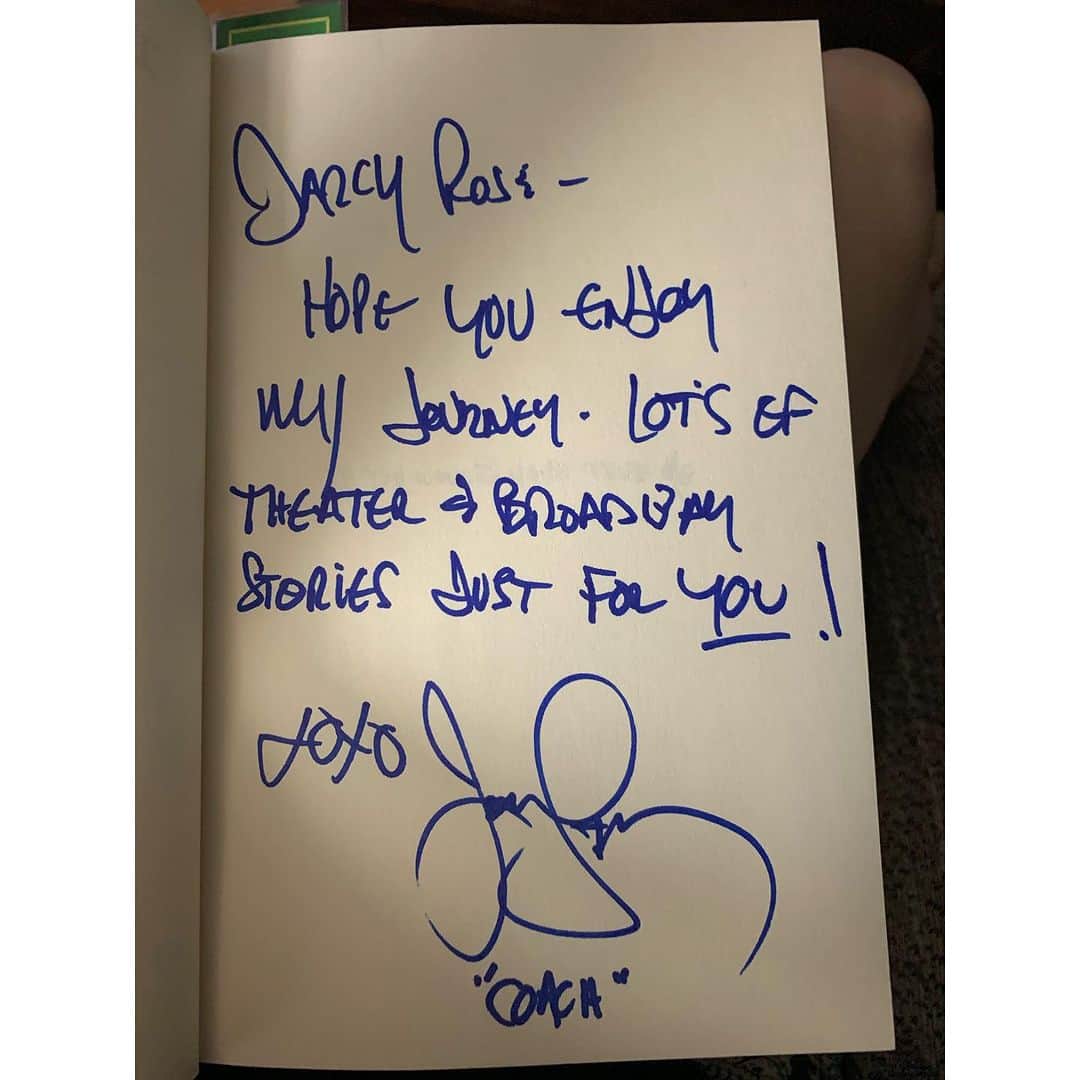 DARCY ROSE –
HOPE YOU ENJOY
MY JOURNEY. LOT'S OF
THEATER & BROADWAY
STORIES JUST FOR YOU!
XOXO
"COACH"